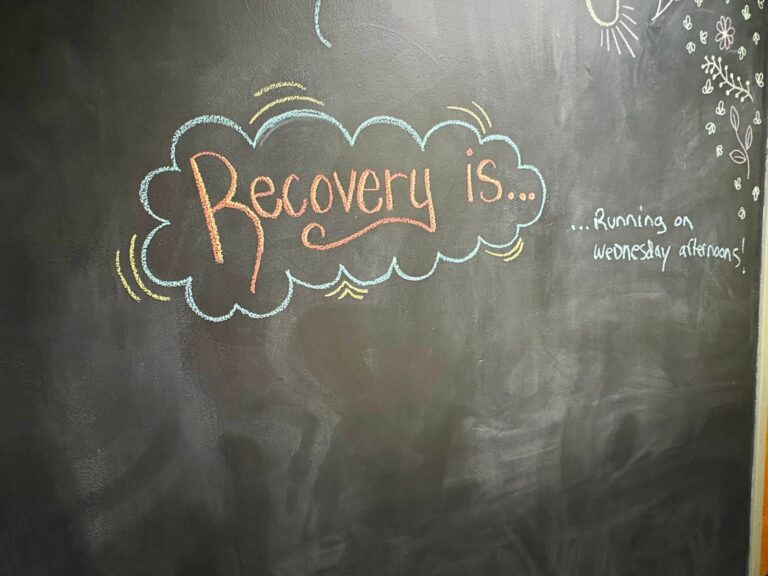 Recovery is...
...Running on
WeDNesDay afternoons!